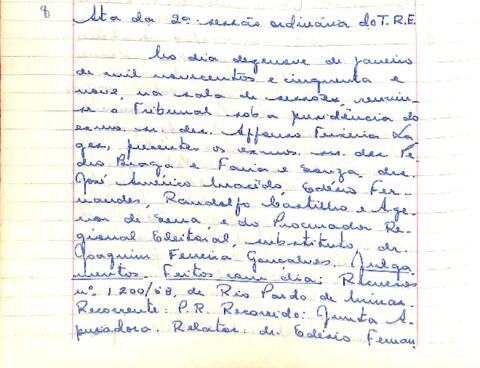 8
Ata da 2ª sessão ordinária do T.R.E.
No dia dezenove de janeiro
de mil novecentos e cinquenta e
nove, na sala de sessões, reuniu-
se o Tribunal sob a presidência do
exmo. sr. des. Affonso Teixeira La-
ges, presentes os exmos. srs. des. Pe-
dro Braga e Faria e Souza, drs.
José Américo Macêdo, Edésio Fer-
nandes, Randolfo Castilho e Age-
nor de Sena, e do Procurador Re-
gional Eleitoral, substituto, dr.
Joaquim Ferreira Gonçalves. Julga-
mentos. Feitos com dia: Recursos
nº 1.200/58, de Rio Pardo de Minas.
Recorrente: P.R. Recorrido: Junta A-
puradora. Relator: dr. Edésio Fernan